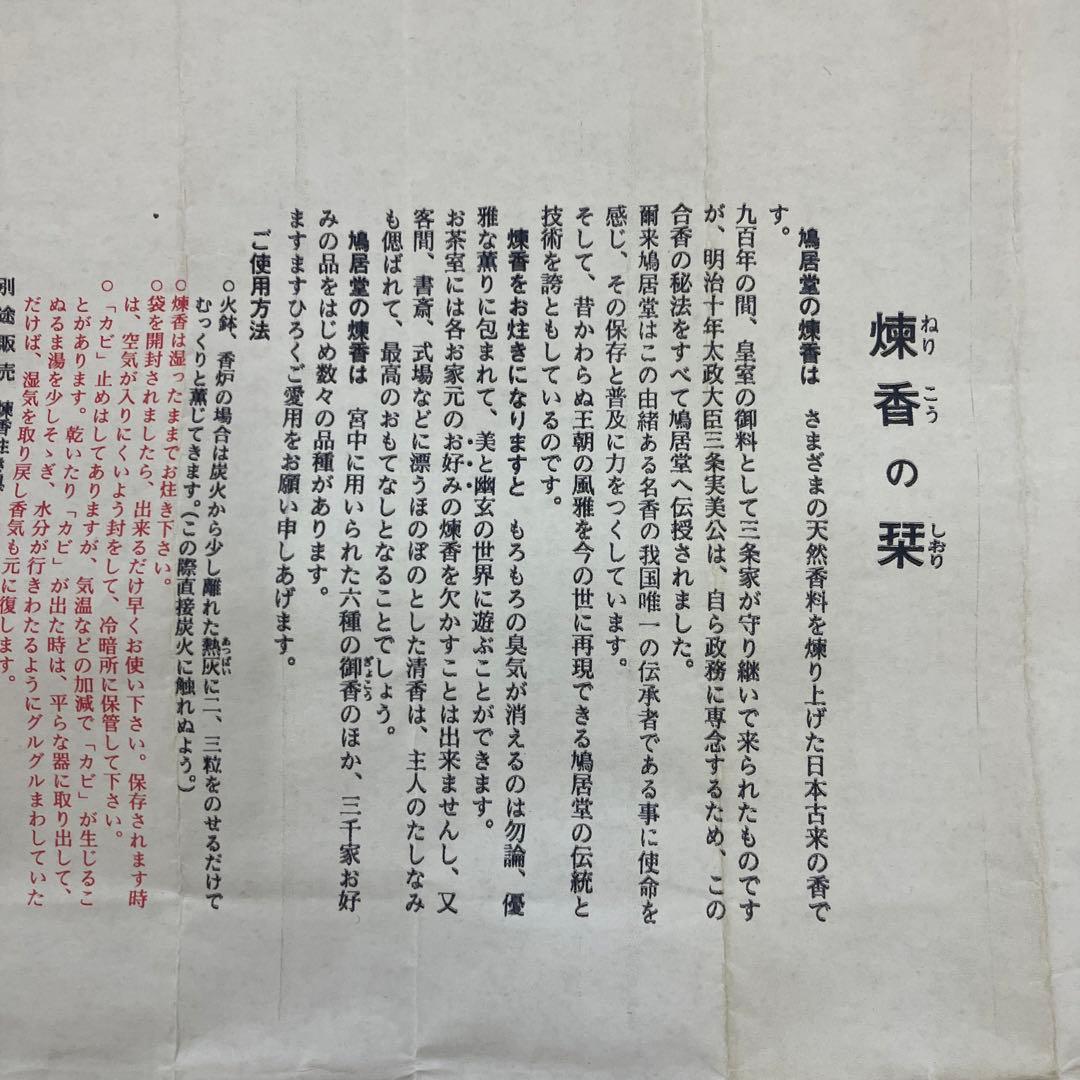 煉香の栞
ねり こう しおり
鳩居堂の煉香は さまざまの天然香料を煉り上げた日本古来の香で
す。
九百年の間、皇室の御料として三条家が守り継いで来られたものです
が、明治十年太政大臣三条実美公は、自ら政務に専念するため、この
合香の秘法をすべて鳩居堂へ伝授されました。
爾来鳩居堂はこの由緒ある名香の我国唯一の伝承者である事に使命を
感じ、その保存と普及に力をつくしています。
そして、昔かわらぬ王朝の風雅を今の世に再現できる鳩居堂の伝統と
技術を誇ともしているのです。
煉香をお炷きになりますと もろもろの臭気が消えるのは勿論、優
雅な薫りに包まれて、美と幽玄の世界に遊ぶことができます。
お茶室には各お家元のお好みの煉香を欠かすことは出来ませんし、又
客間、書斎、式場などに漂うほのぼのとした清香は、主人のたしなみ
も偲ばれて、最高のおもてなしとなることでしょう。
鳩居堂の煉香は 宮中に用いられた六種の御香のほか、三千家お好
ぎょこう
みの品をはじめ数々の品種があります。
ますますひろくご愛用をお願い申しあげます。
ご使用方法
○火鉢、香炉の場合は炭火から少し離れた熱灰に二、三粒をのせるだけで
あつばい
むっくりと薫じてきます。(この際直接炭火に触れぬよう。)
○煉香は湿ったままでお炷き下さい。
○袋を開封されましたら、出来るだけ早くお使い下さい。保存されます時
は、空気が入りにくいよう封をして、冷暗所に保管して下さい。
○「カビ」止めはしてありますが、気温などの加減で「カビ」が生じるこ
とがあります。乾いたり「カビ」が出た時は、平らな器に取り出して、
ぬるま湯を少しそゝぎ、水分が行きわたるようにグルグルまわしていた
だけば、湿気を取り戻し香気も元に復します。
別途販売 煉香炷き具